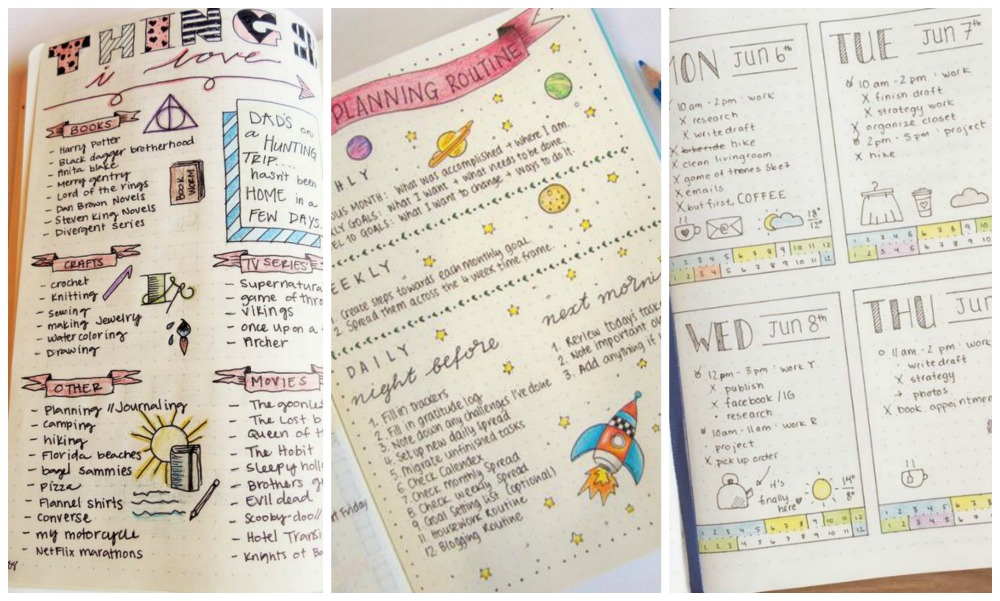 THINGS
i love
BOOKS
- Harry Potter
- Black dagger brotherhood
- Anita blake
- Merry gentry
- Lord of the rings
- Dan Brown Novels
- Steven King Novels
- Divergent Series
BOOK WORM
DAD'S on
a HUNTING
TRIP....
hasn't been
HOME in a
FEW DAYS
CRAFTS
- crochet
- Knitting
- Sewing
- making Jewelry
- water coloring
- Drawing
TV SERIES
- Supernatura
- game of thro
- Vikings
- once upon a
- Archer
OTHER
- Planning // Journaling
- camping
- hiking
- Florida beaches
- bagel sammies
- Pizza
- Flannel shirts
- converse
- my motorcycle
- NetFlix marathons
MOVIES
- The goonies
- The Lost b
- Queen of t
- The Hobit
- Sleepy holl
- Brothers g
- Evil dead
- Scooby-doo//
- Hotel Transi
- Knights of Ba
PLANNING ROUTINE
HLY
OUS MONTH: What was accomplished + where I am.
LY GOALS: What I want + what needs to be done.
EL TO GOALS: What I want to change + ways to do it.
EEKLY
1. Create steps towards each monthly goal.
2. Spread them across the 4 week time frame.
DAILY
night before
1. Fill in trackers
2. Fill in gratitude log
3. Note down any challenges I've done
4. Set up new daily spread
5. Migrate unfinished tasks
6. Check Calendex
7. Check Monthly Spread
8. Check weekly Spread
9. Goal Setting List (optional)
11. Housework Routine
12. Blogging Routine
next morni
1. Review today's task
2. Note important
3. Add anything if
Friday
MON Jun 6th
10 am - 2 pm : work
X research
X write draft
X bikeride hike
X clean livingroom
X game of thrones S6e7
X emails
X but first, COFFEE
18°
12°
3 4 5 6 7 8 9 10 11 12
1 2 3 4 5 6 7 8 9 10 11 12
TUE Jun 7th
10 am - 2 pm : work
X finish draft
X strategy work
X organize closet
2pm - 5pm : project
X hike
1 2 3 4 5 6 7 8 9 10
1 2 3 4 5 6 7 8 9 10
WED Jun 8th
12pm - 3pm : work Y
X publish
X facebook / IG
• research
10am - 11am : work R
project
X pick up order
it's
finally
here
14°
8°
1 2 3 4 5 6 7 8 9 10 11 12
1 2 3 4 5 6 7 8 9 10 11 12
THU Jun
11am - 2 pm : work
• write draft
X strategy
→ photos
X book appointmen
1 2 3 4 5 6 7 8 9
1 2 3 4 5 6 7 8 9